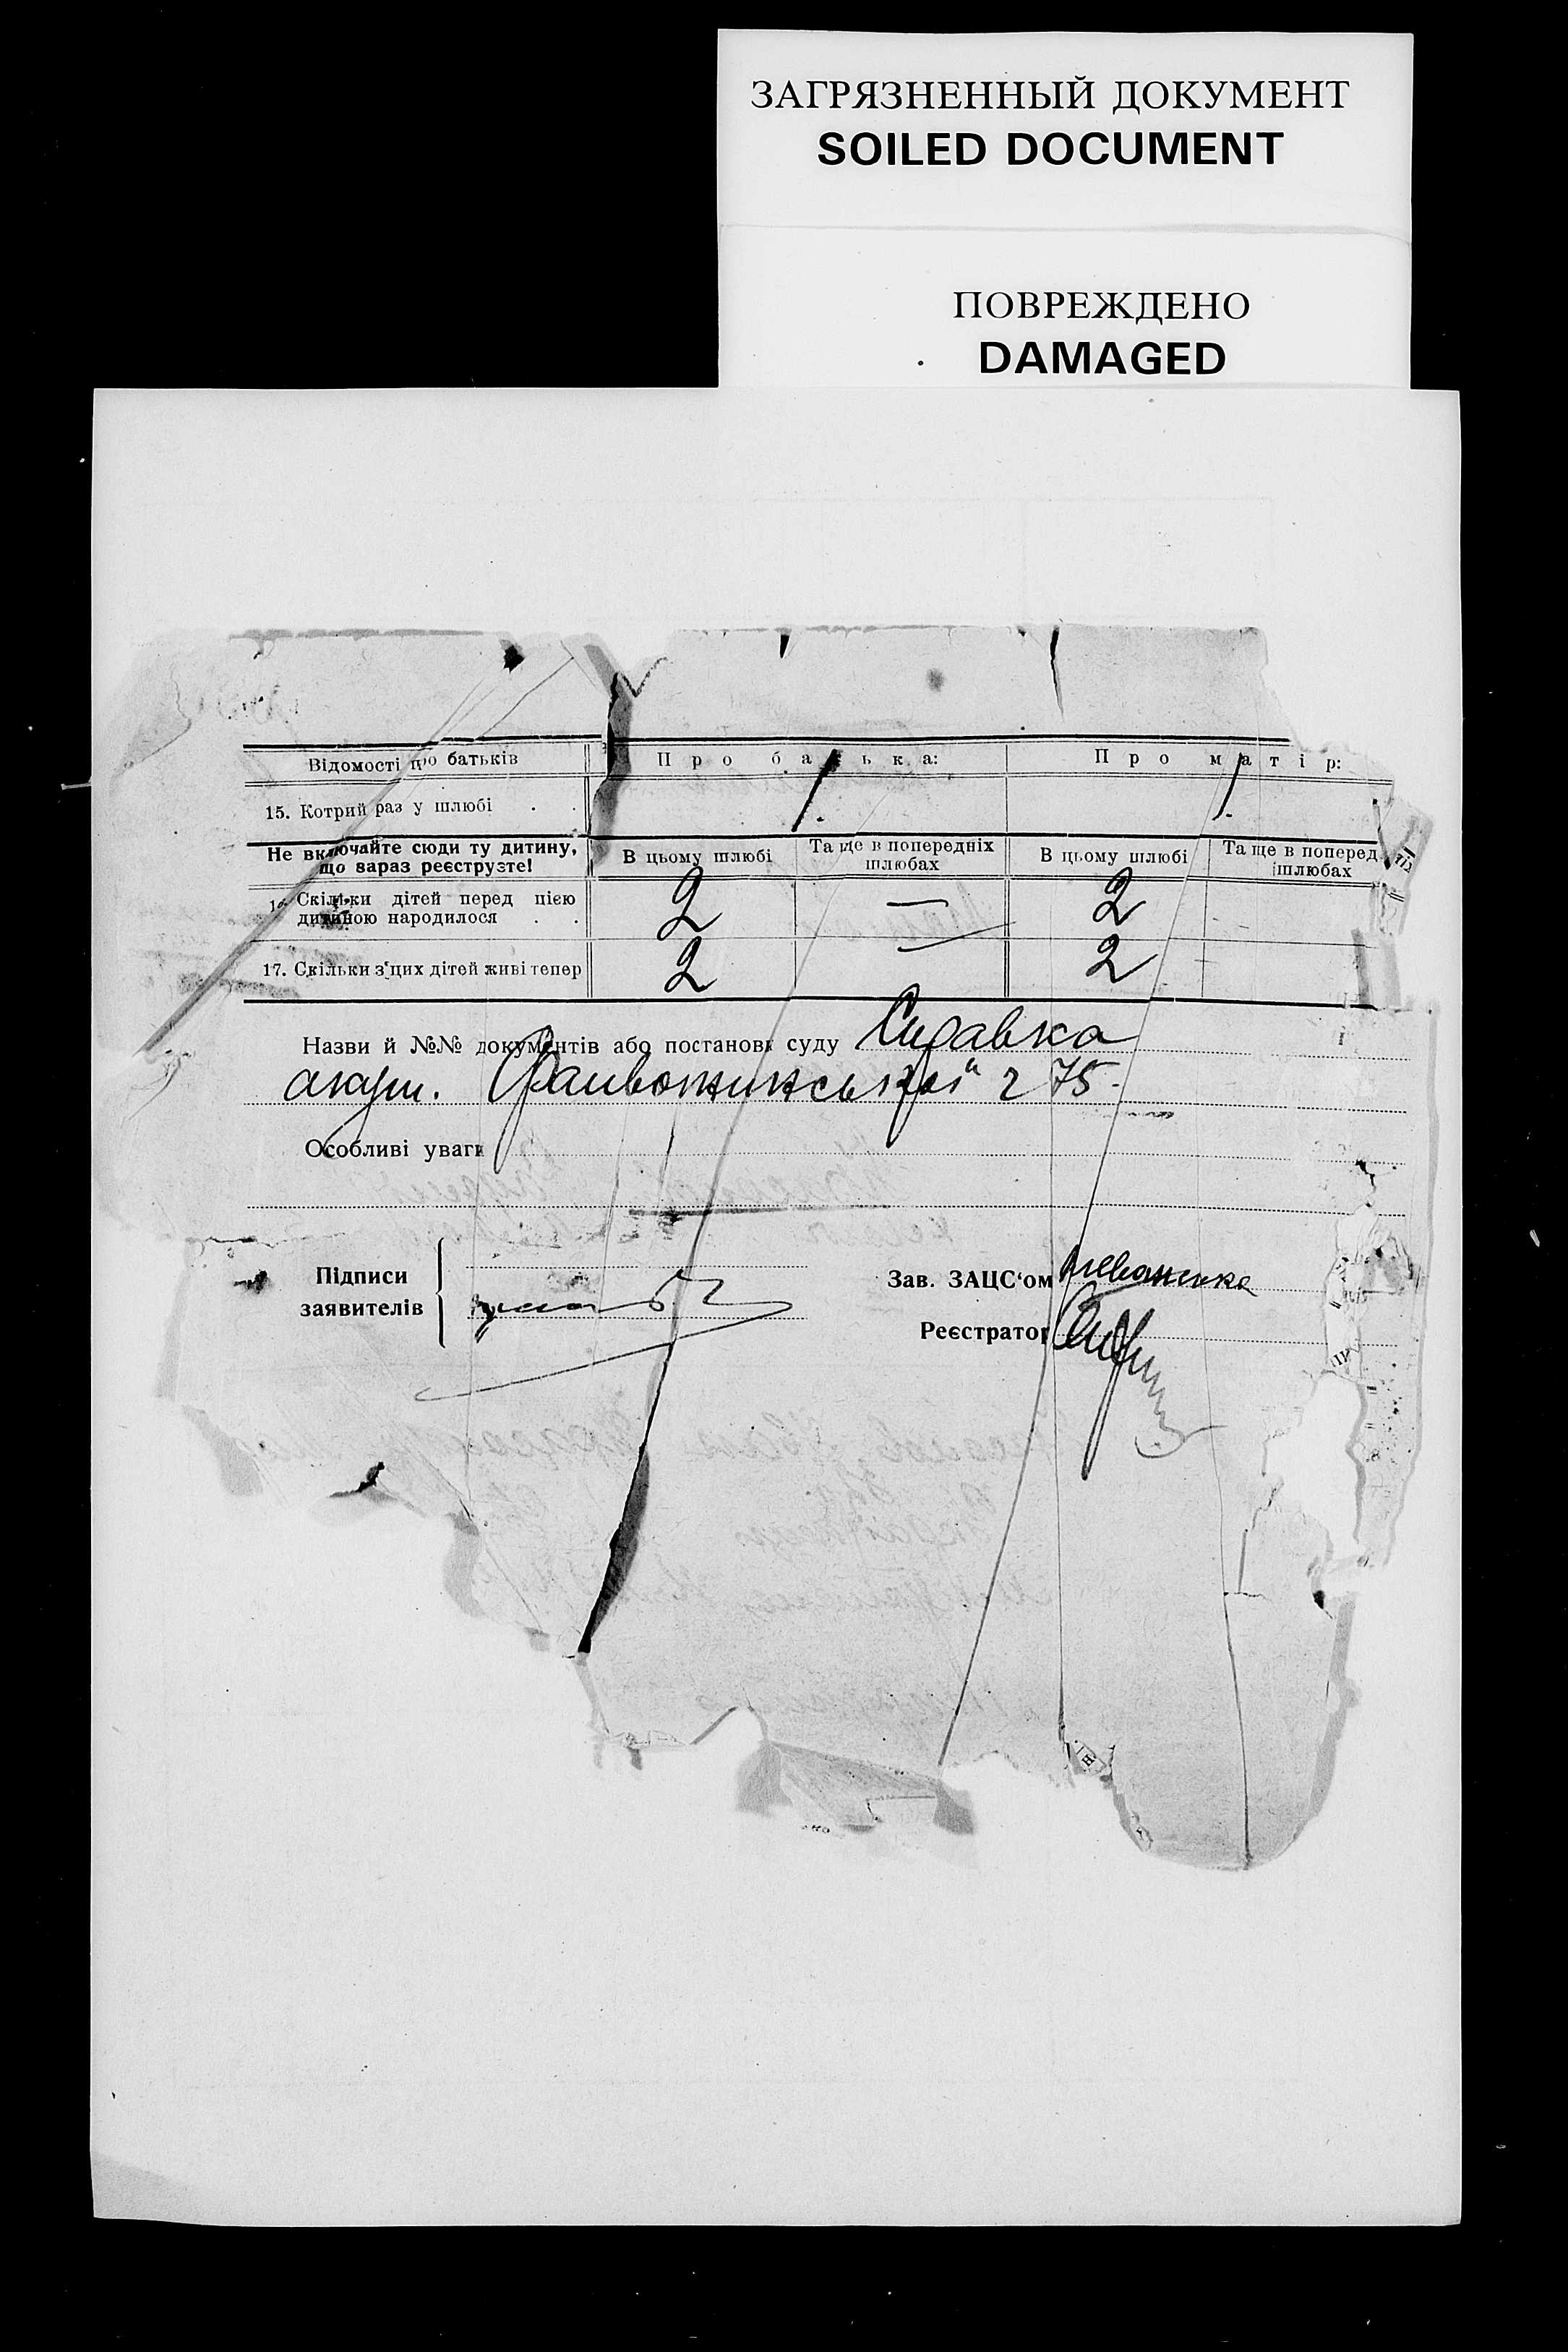 ЗАГРЯЗНЕННЫЙ ДОКУМЕНТ
SOILED DOCUMENT
ПОВРЕЖДЕНО
DAMAGED
Відомості про батьків
Про батька:
Про матір:
15. Котрий раз у шлюбі . .
1.
1.
Не включайте сюди ту дитину, що зараз реєструєте!
В цьому шлюбі
Та ще в попередніх шлюбах
В цьому шлюбі
Та ще в поперед іх шлюбах
16. Скільки дітей перед цією дитиною народилося . .
2
—
2
17. Скільки з цих дітей живі тепер
2
—
2
Назви й №№ документів або постанови суду Справка
акуш. 75
Особливі уваги
Підписи заявителів
Зав. ЗАЦС‘ом
Реєстратор